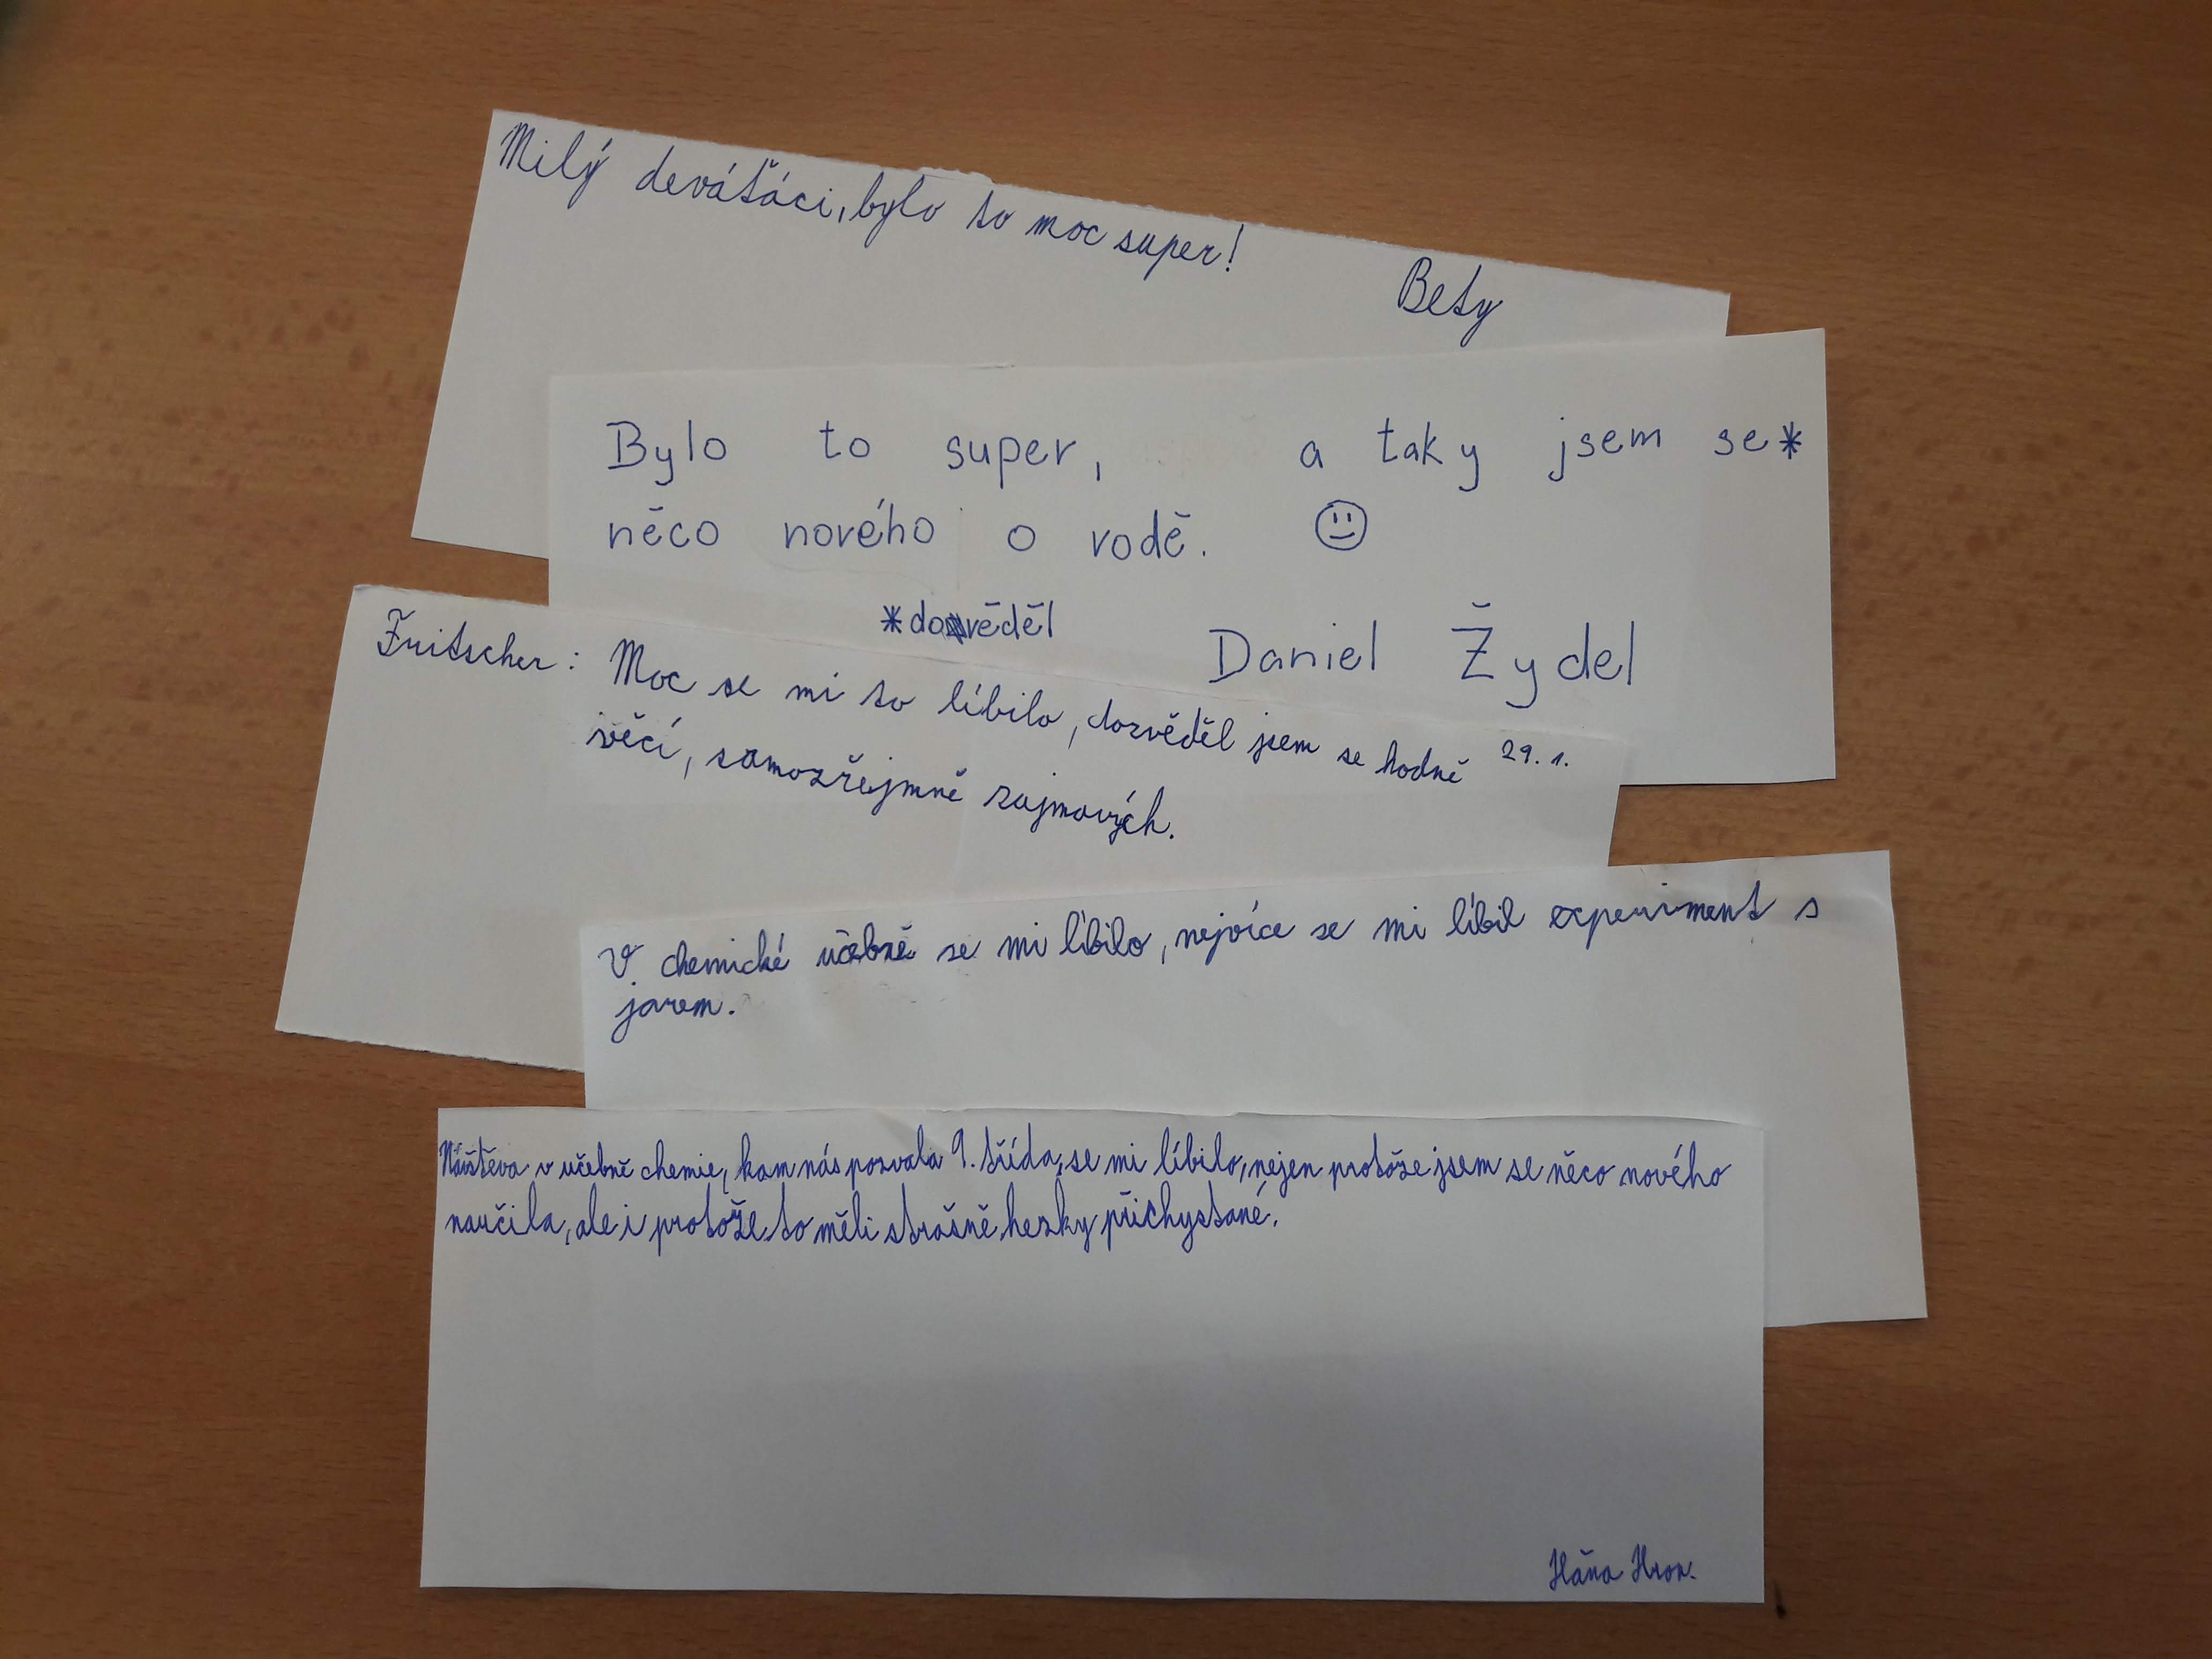 Milý deváťáci, bylo to moc super!
Bety
Bylo to super, a taky jsem se*
něco nového o vodě. ☺
*dověděl
Daniel Žydel
Fritscher: Moc se mi to líbilo, dozvěděl jsem se hodně 29. 1.
věcí, samozřejmně zajmových.
V chemické učebně se mi líbilo, nejvíce se mi líbil experiment s
jarem.
Návštěva v učebně chemie, kam nás pozvala 9. třída, se mi líbilo, nejen protože jsem se něco nového
naučila, ale i protože to měli strašně hezky přichystané.
Háňa Hron.